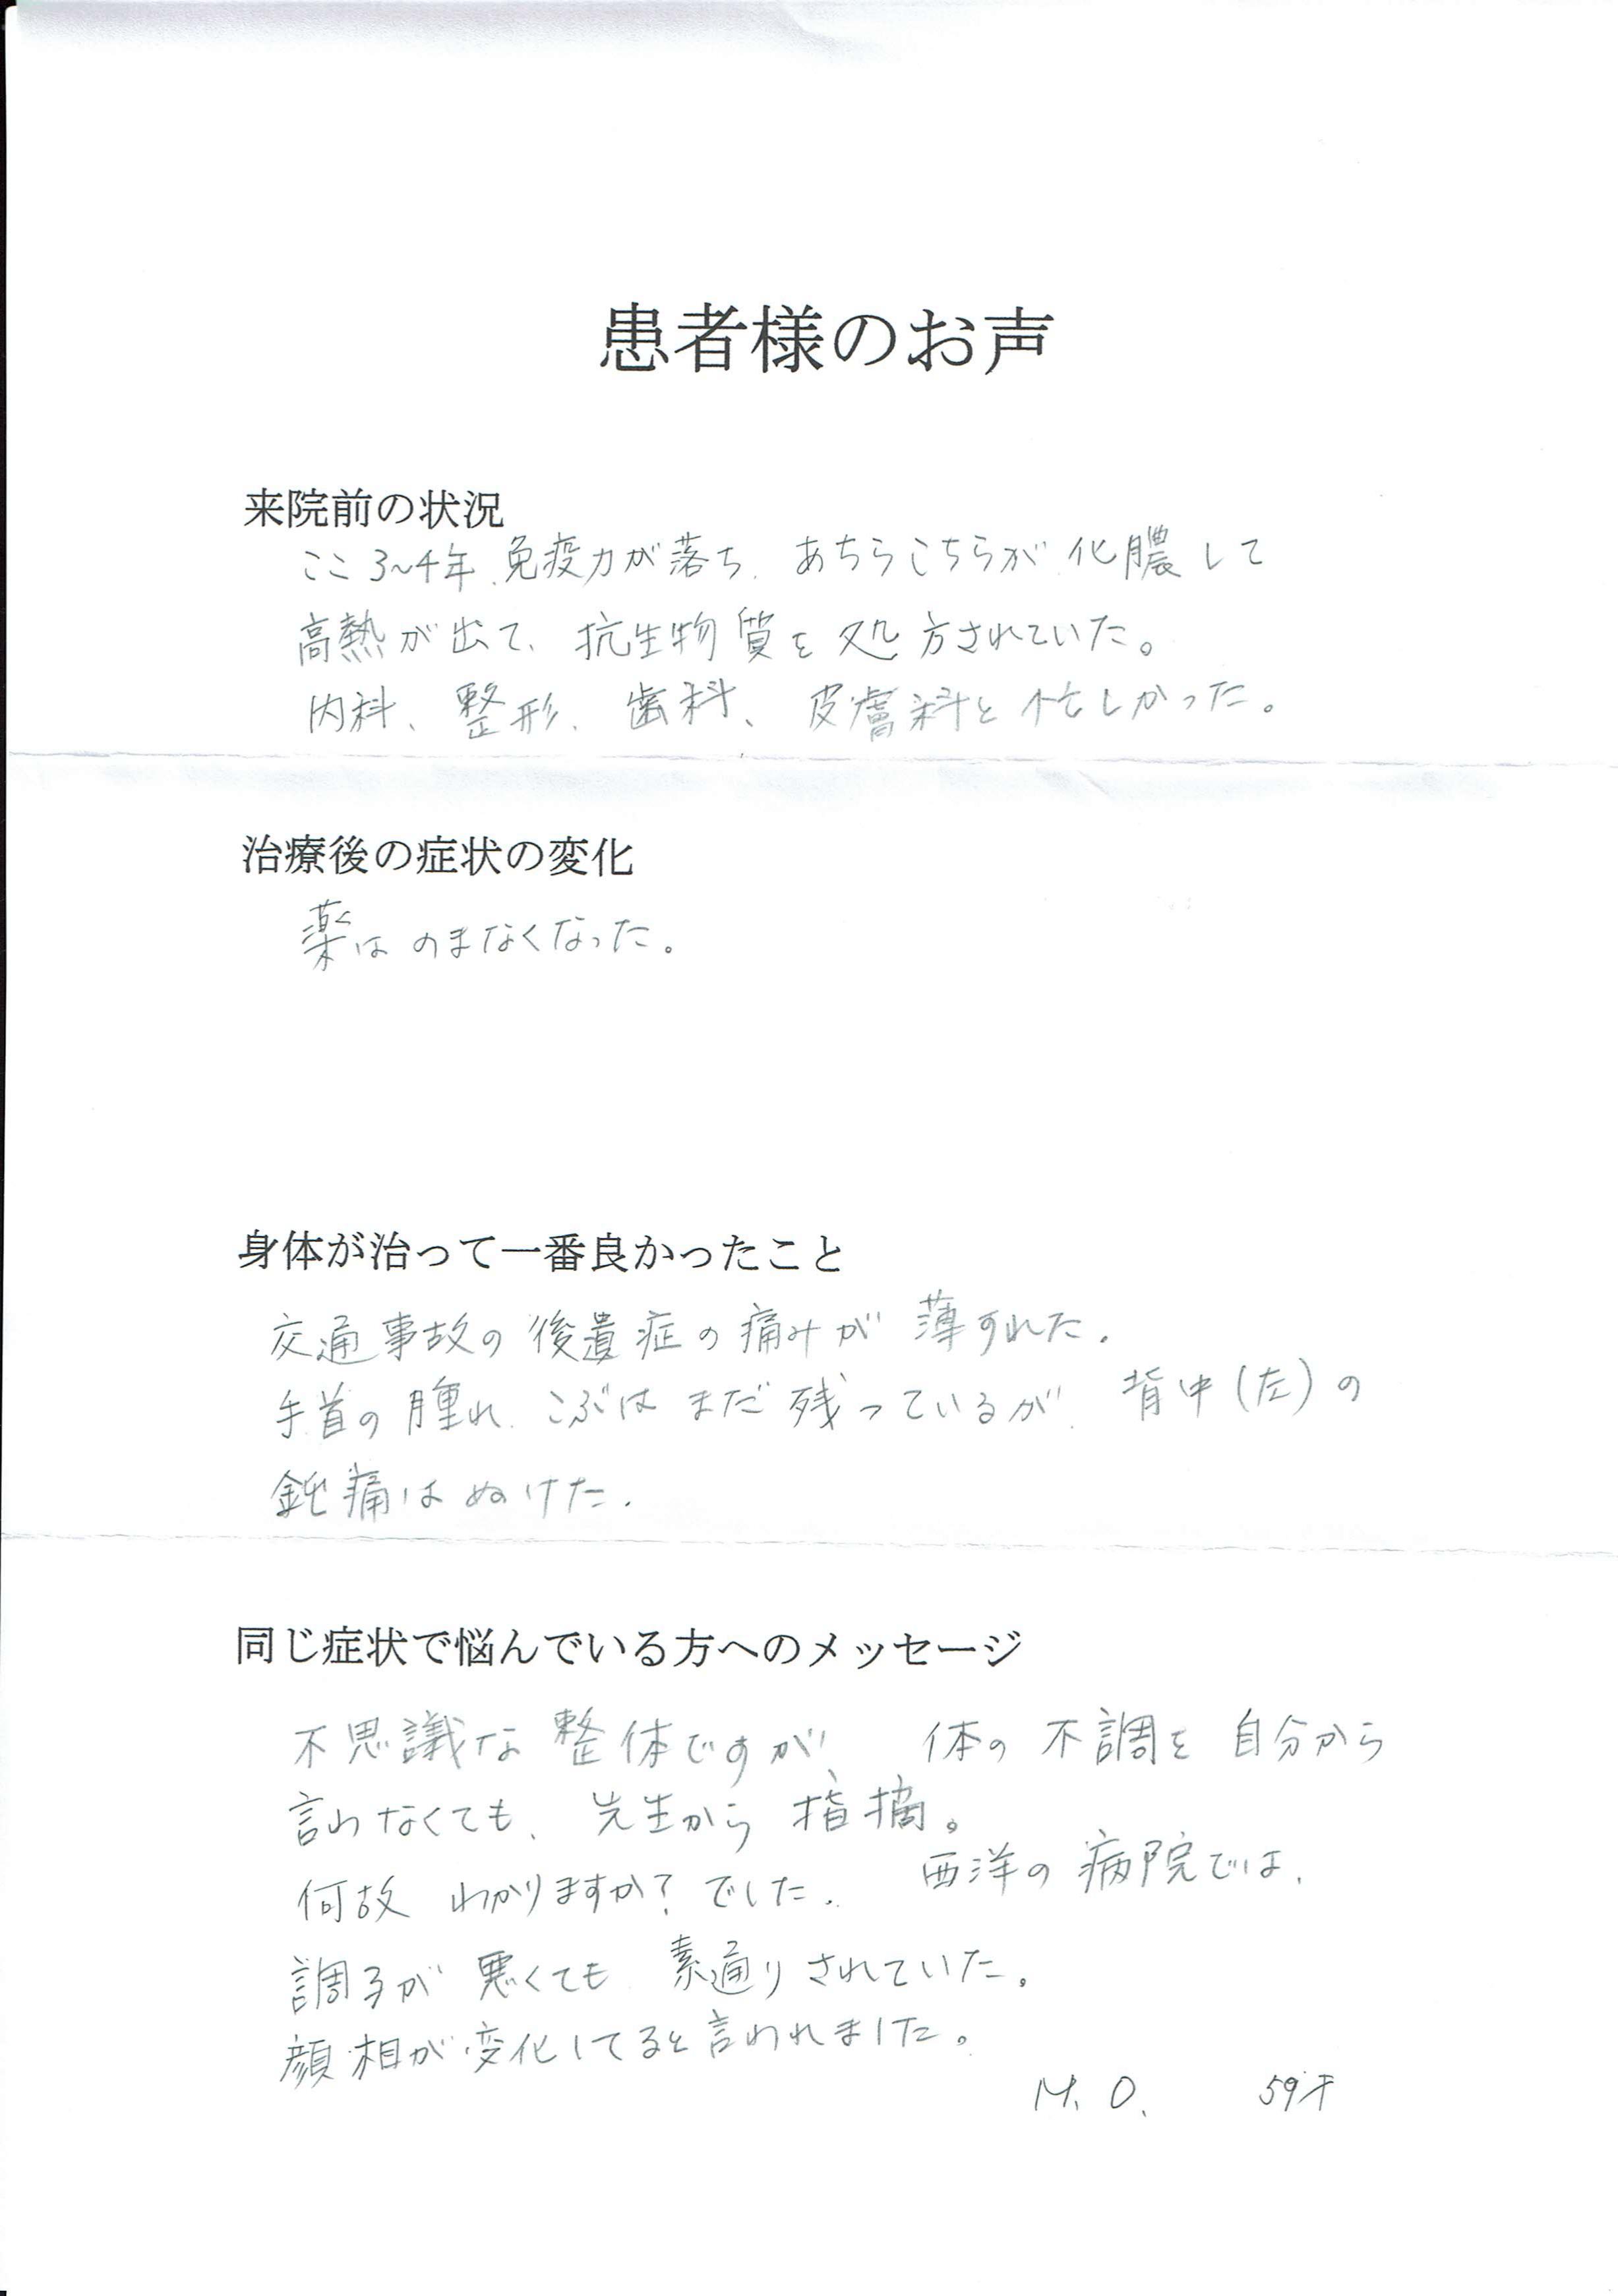 患者様のお声
来院前の状況
ここ3~4年、免疫力が落ち、あちらこちらが化膿して
高熱が出て、抗生物質を処方されていた。
内科、整形、歯科、皮膚科と忙しかった。
治療後の症状の変化
薬はのまなくなった。
身体が治って一番良かったこと
交通事故の後遺症の痛みが薄すれた。
手首の腫れ、こぶはまだ残っているが、背中(左)の
鈍痛はぬけた。
同じ症状で悩んでいる方へのメッセージ
不思議な整体ですが、体の不調を自分から
言わなくても、先生から指摘。
何故わかりますか?でした。西洋の病院では、
調子が悪くても素通りされていた。
顔相が変化してると言われました。
M.O. 59才